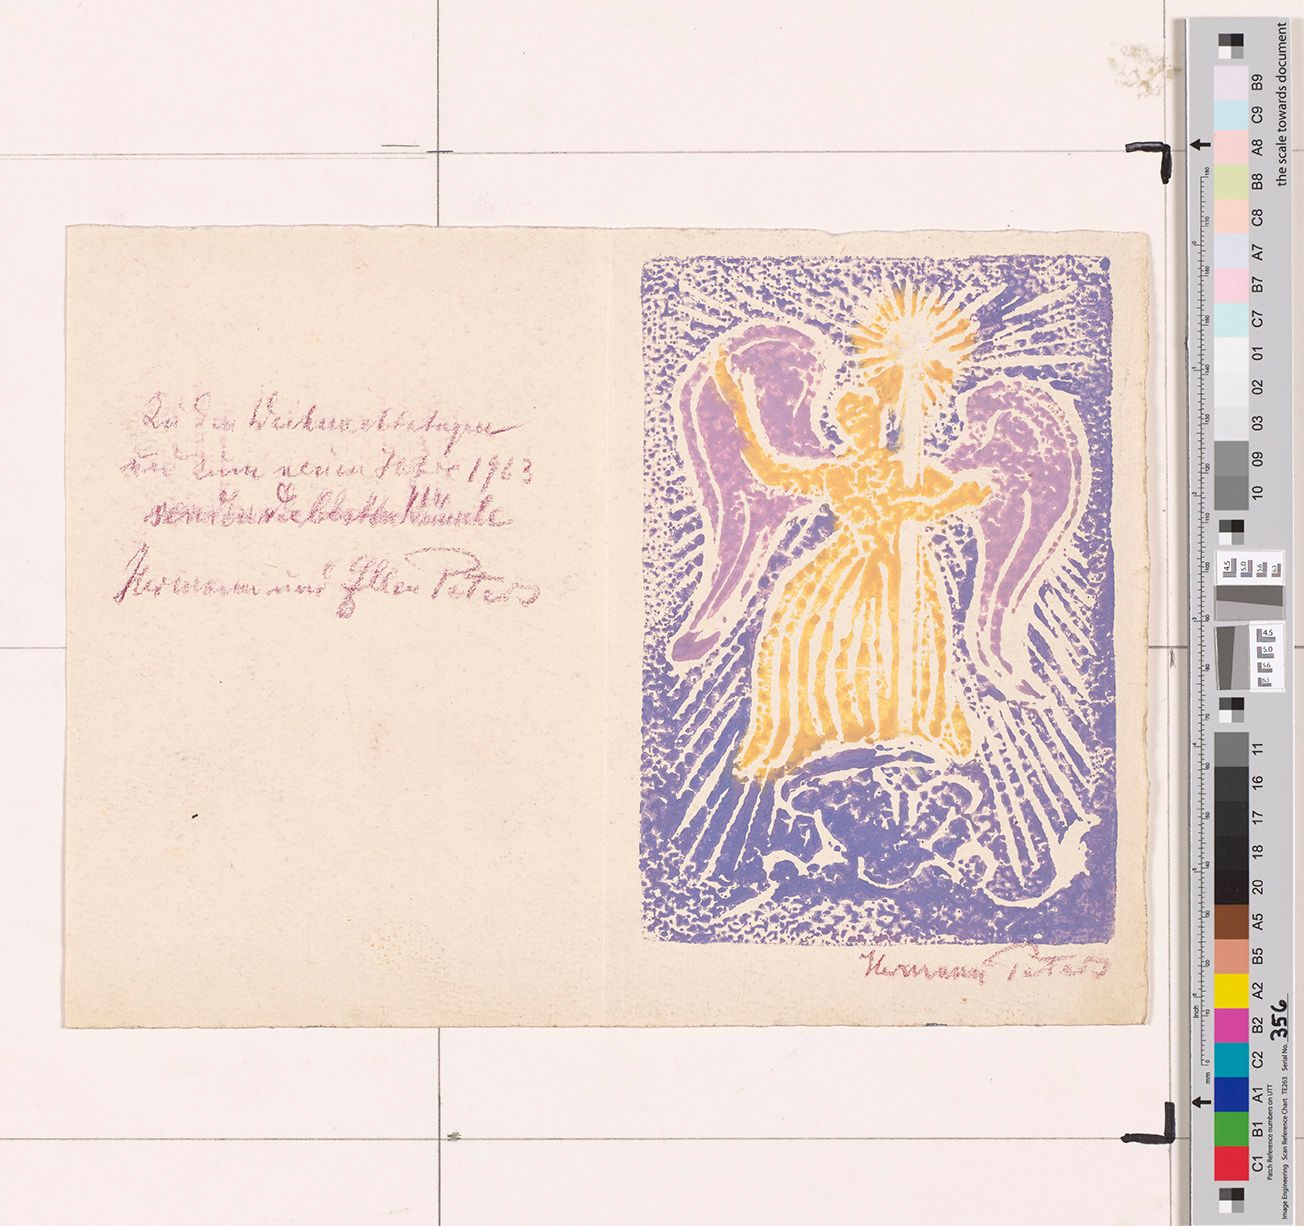 Zu den Weihnachtstagen
und zum neuen Jahre 1963
senden die besten Wünsche
Hermann und Ellen Peters
Hermann Peters
the scale towards document
B9
C9
A8
B8
C8
A7
B7
C7
01
02
03
09
10
4.5 5.0 5.6 6.3
4.5
5.0
5.6
6.3
11
16
17
18
20
A5
B5
A2
B2
C2
A1
B1
C1
Inch
mm
Patch Reference numbers on UTT
Image Engineering Scan Reference Chart TE263 Serial No. 356